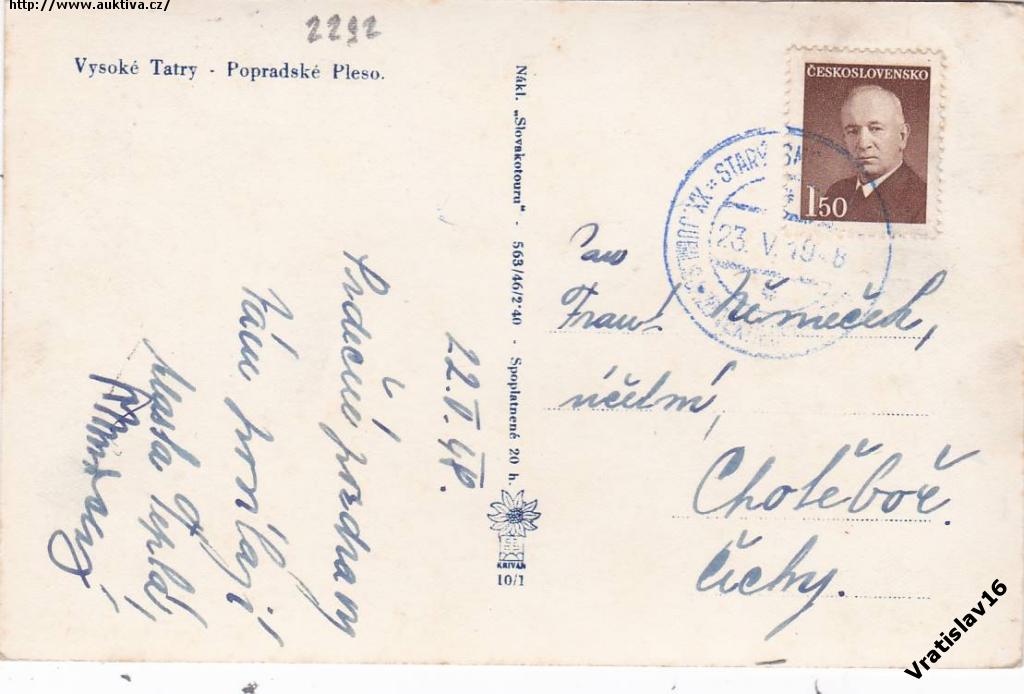 http://www.auktiva.cz/
2292
Vysoké Tatry - Popradské Pleso.
Nákl. „Slovakotouru" - 563/46/2·40 - Spoplatnené 20 h.
KRIVÁŇ
10/1
ČESKOSLOVENSKO
1 50
STARÝ
23. V. 1948
22. V. 48.
Srdečné pozdravy
Vám posílají
Pan
Frant. Němeček,
účetní,
Chotěboř.
Čechy.
Vratislav16